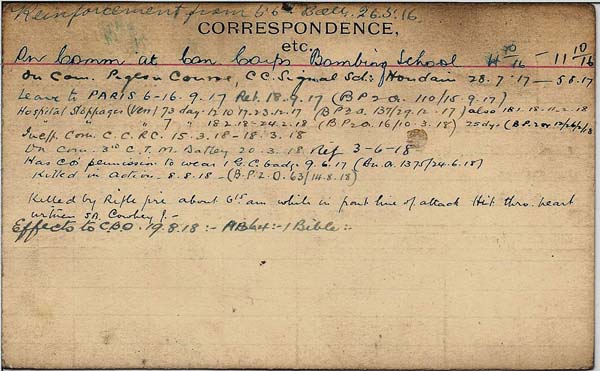 Reinforcement from 66 Batt. 26.5.16.
CORRESPONDENCE,
etc.
On Comm at Can Corps Bombing School 4 10/16 - 11 10/16
On Com. Pigeon Course, C.C. Signal Scl: Houdain 28.7.17 — 5.8.17
Leave to PARIS 6-16.9.17 Ret. 18.9.17 (B P 2 O. 110/15.9.17)
Hospital Stoppages (Ven) 73 days 12.10.17-23.12.17 (BP2O. 137/29.12.17) also 18.1.18-11.2.18
" " " 7 " 18.2.18-24.2.18 (BP2O.16/10.3.18) 25dys.
Ineff. Com. C.C.R.C. 15.3.18-18.3.18
On Com. 3rd C.T.M. Batley 20.3.18 Ret 3-6-18
Has CO's permission to wear 1 G.C. badge 9.6.17 (Au.O. 1375/24.6.18)
Killed in action - 8.8.18 - (B.P.2.O. 63/14.8.18)
Killed by Rifle fire about 6 am while in front line of attack Hit thro. heart
witness SA. Cowley J. -
Effects to CBO. 19.8.18 :- AB64 :- 1 Bible :-